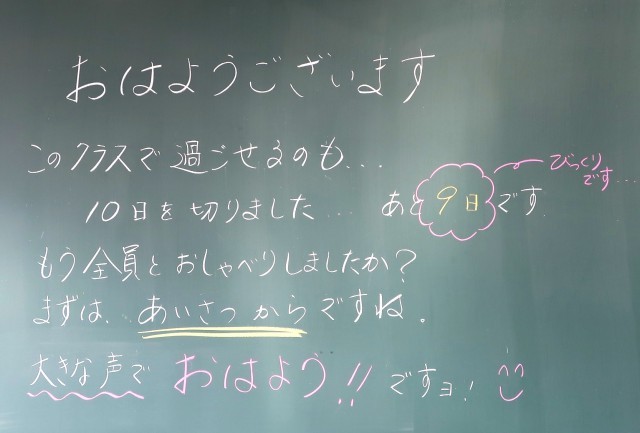 おはようございます
このクラスで過ごせるのも...
10日を切りました... あと9日です.
びっくり
です...
もう全員とおしゃべりしましたか?
まずは、あいさつからですね。
大きな声でおはよう!!ですヨ!